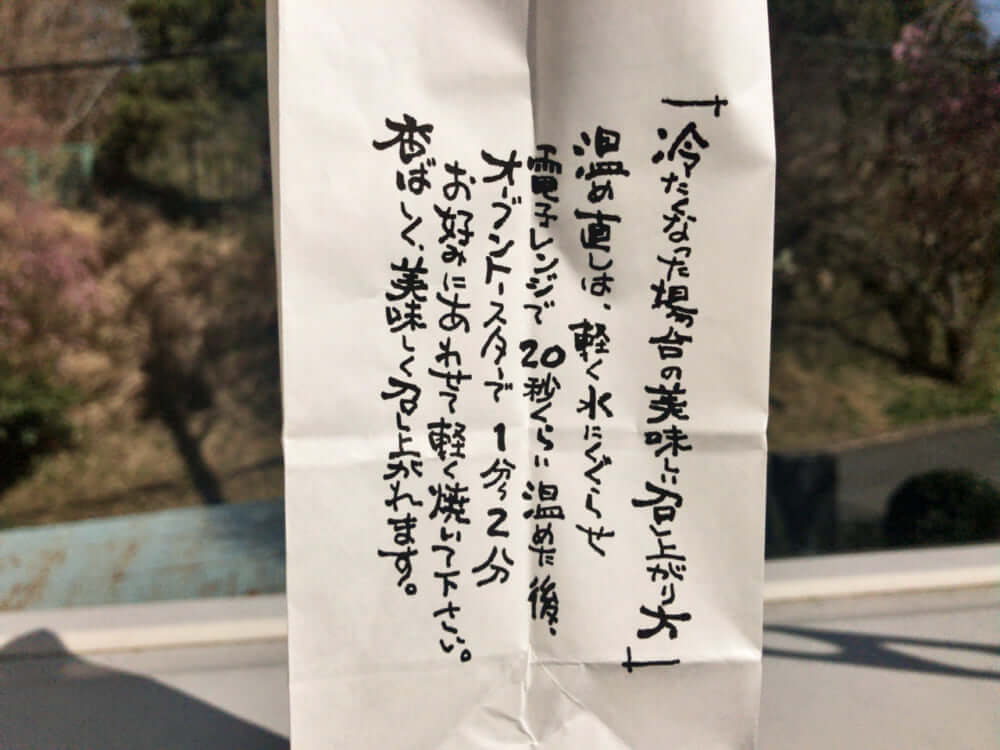 「冷たくなった場合の美味しい召し上がり方」
温め直しは、軽く水にぐらせ
電子レンジで20秒くらい温めた後、
オーブントースターで1分～2分
お好みにあわせて軽く焼いて下さい。
香ばしく、美味しく召し上がれます。